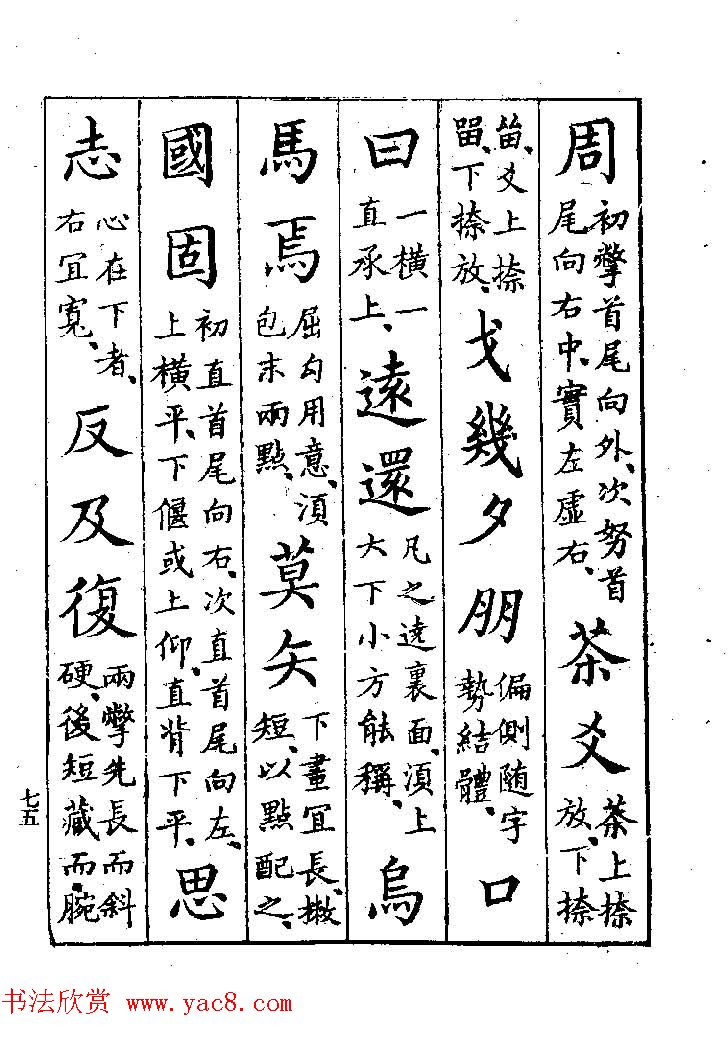 周初撆首尾向外、次努首尾向右中、實左虛右、茶爻茶上捺放、下捺
留、爻上捺留、下捺放、戈幾夕朋偏側随字勢結體、口
曰一橫一直承上、遠還凡之遶裏面、須上大下小方能稱、烏
馬焉屈勾用意、須包末兩點、莫矢下畫宜長、撇短、以點配之、
國固初直首尾向右、次直首尾向左、上橫平、下偃或上仰、直背下平、思
志心在下者、右冝寬、反及復兩撆先長而斜硬、後短藏而腕
七五
书法欣赏 www.yac8.com